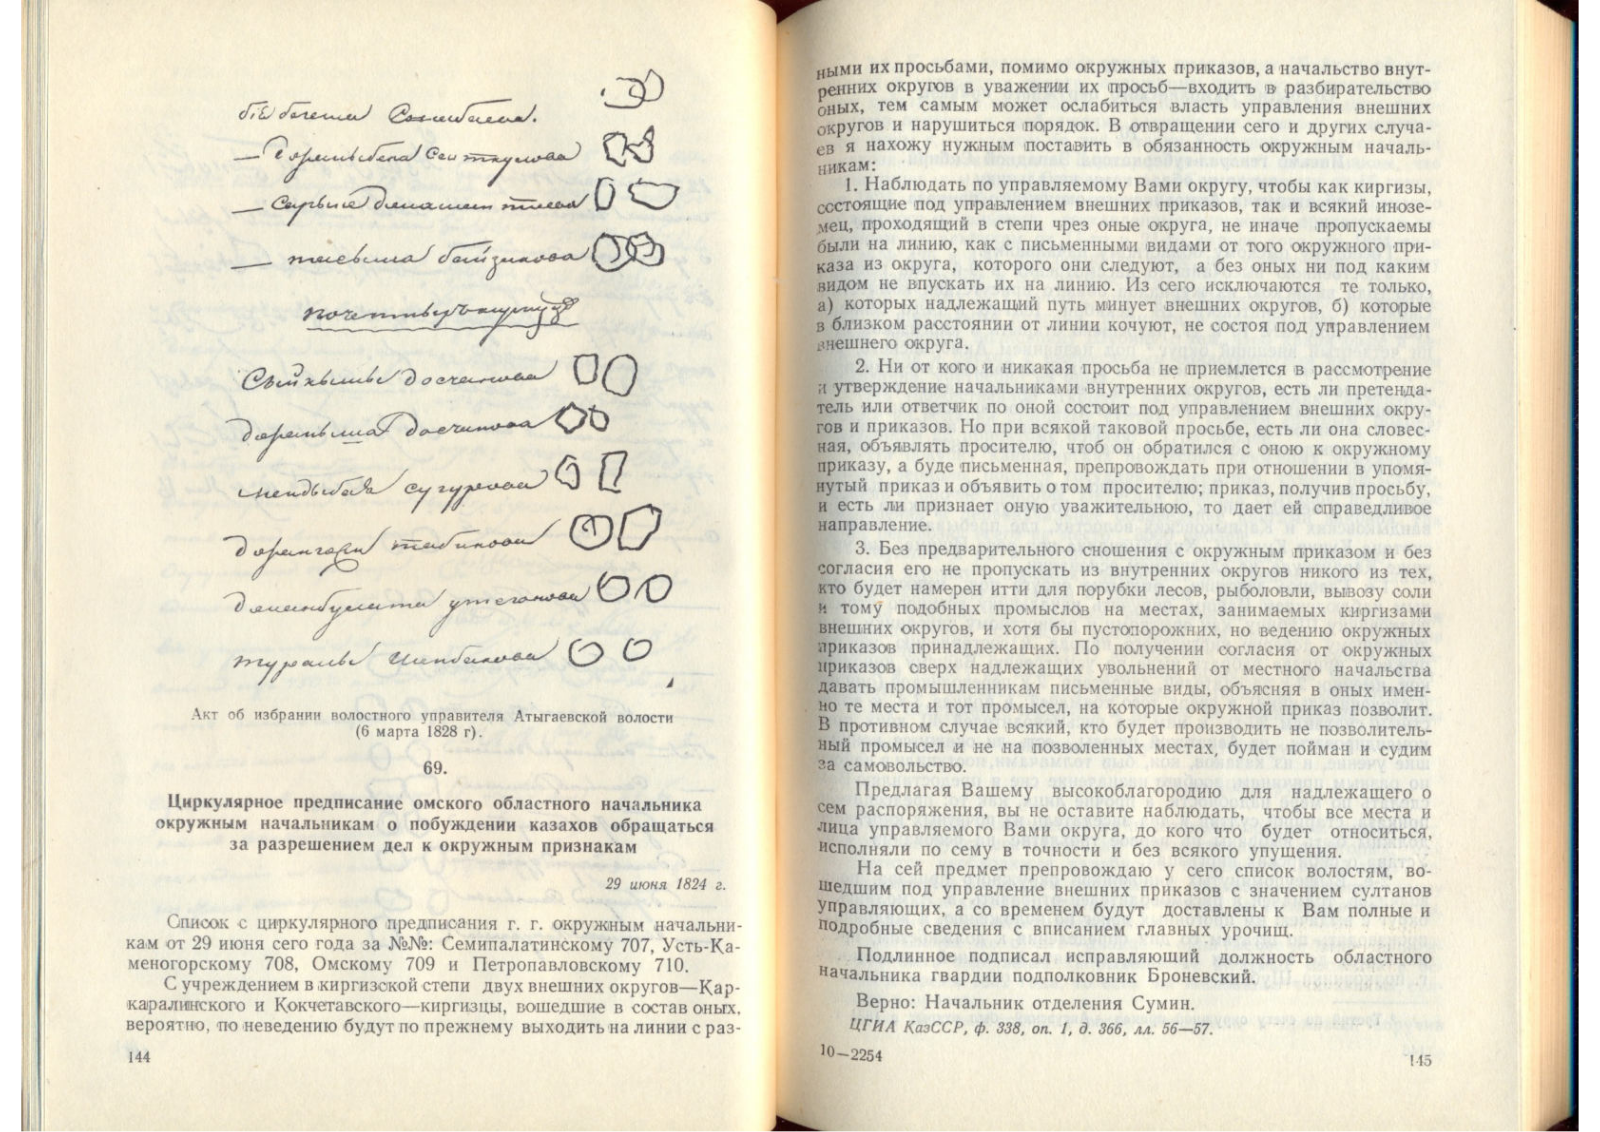 Акт об избрании волостного управителя Атыгаевской волости
(6 марта 1828 г).
69.
Циркулярное предписание омского областного начальника
окружным начальникам о побуждении казахов обращаться
за разрешением дел к окружным признакам
29 июня 1824 г.
Список с циркулярного предписания г. г. окружным начальни-
кам от 29 июня сего года за №№: Семипалатинскому 707, Усть-Ка-
меногорскому 708, Омскому 709 и Петропавловскому 710.
С учреждением в киргизской степи двух внешних округов—Кар-
каралинского и Кокчетавского—киргизцы, вошедшие в состав оных,
вероятно, по неведению будут по прежнему выходить на линии с раз-
144
ными их просьбами, помимо окружных приказов, а начальство внут-
ренних округов в уважении их просьб—входить в разбирательство
оных, тем самым может ослабиться власть управления внешних
округов и нарушиться порядок. В отвращении сего и других случа-
ев я нахожу нужным поставить в обязанность окружным началь-
никам:
1. Наблюдать по управляемому Вами округу, чтобы как киргизы,
состоящие под управлением внешних приказов, так и всякий инозе-
мец, проходящий в степи чрез оные округа, не иначе пропускаемы
были на линию, как с письменными видами от того окружного при-
каза из округа, которого они следуют, а без оных ни под каким
видом не впускать их на линию. Из сего исключаются те только,
а) которых надлежащий путь минует внешних округов, б) которые
в близком расстоянии от линии кочуют, не состоя под управлением
внешнего округа.
2. Ни от кого и никакая просьба не приемлется в рассмотрение
и утверждение начальниками внутренних округов, есть ли претенда-
тель или ответчик по оной состоит под управлением внешних окру-
гов и приказов. Но при всякой таковой просьбе, есть ли она словес-
ная, объявлять просителю, чтоб он обратился с оною к окружному
приказу, а буде письменная, препровождать при отношении в упомя-
нутый приказ и объявить о том просителю; приказ, получив просьбу,
и есть ли признает оную уважительною, то дает ей справедливое
направление.
3. Без предварительного сношения с окружным приказом и без
согласия его не пропускать из внутренних округов никого из тех,
кто будет намерен итти для порубки лесов, рыболовли, вывозу соли
и тому подобных промыслов на местах, занимаемых киргизами
внешних округов, и хотя бы пустопорожних, но ведению окружных
приказов принадлежащих. По получении согласия от окружных
приказов сверх надлежащих увольнений от местного начальства
давать промышленникам письменные виды, объясняя в оных имен-
но те места и тот промысел, на которые окружной приказ позволит.
В противном случае всякий, кто будет производить не позволитель-
ный промысел и не на позволенных местах, будет пойман и судим
за самовольство.
Предлагая Вашему высокоблагородию для надлежащего о
сем распоряжения, вы не оставите наблюдать, чтобы все места и
лица управляемого Вами округа, до кого что будет относиться,
исполняли по сему в точности и без всякого упущения.
На сей предмет препровождаю у сего список волостям, во-
шедшим под управление внешних приказов с значением султанов
управляющих, а со временем будут доставлены к Вам полные и
подробные сведения с вписанием главных урочищ.
Подлинное подписал исправляющий должность областного
начальника гвардии подполковник Броневский.
Верно: Начальник отделения Сумин.
ЦГИА КазССР, ф. 338, оп. 1, д. 366, лл. 56—57.
10—2254
145